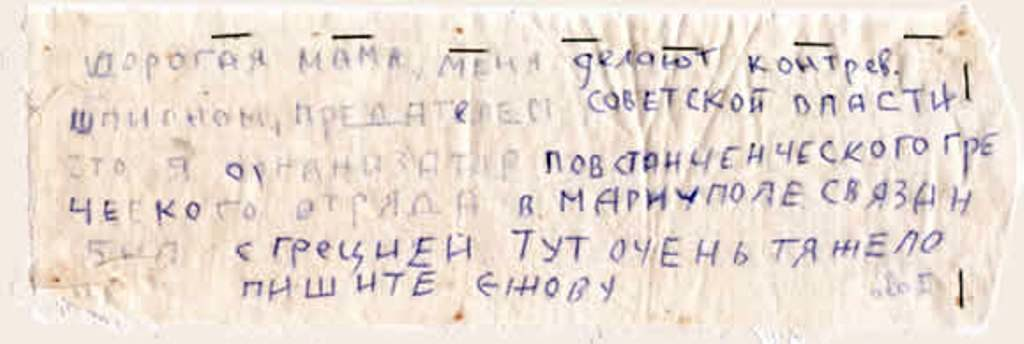 ДОРОГАЯ МАМА, МЕНЯ делают контрев.
шпионом, ПРЕДАТЕЛЕМ СОВЕТСКОЙ ВЛАСТИ
ЭТО Я ОРГАНИЗАТОР ПОВСТАНЧЕНЧЕСКОГО ГРЕ
ЧЕСКОГО ОТРЯДА В МАРИУПОЛЕ СВЯЗАН
БЫЛ с ГРЕЦИЕЙ ТУТ ОЧЕНЬ ТЯЖЕЛО
ПИШИТЕ ЕЖОВУ